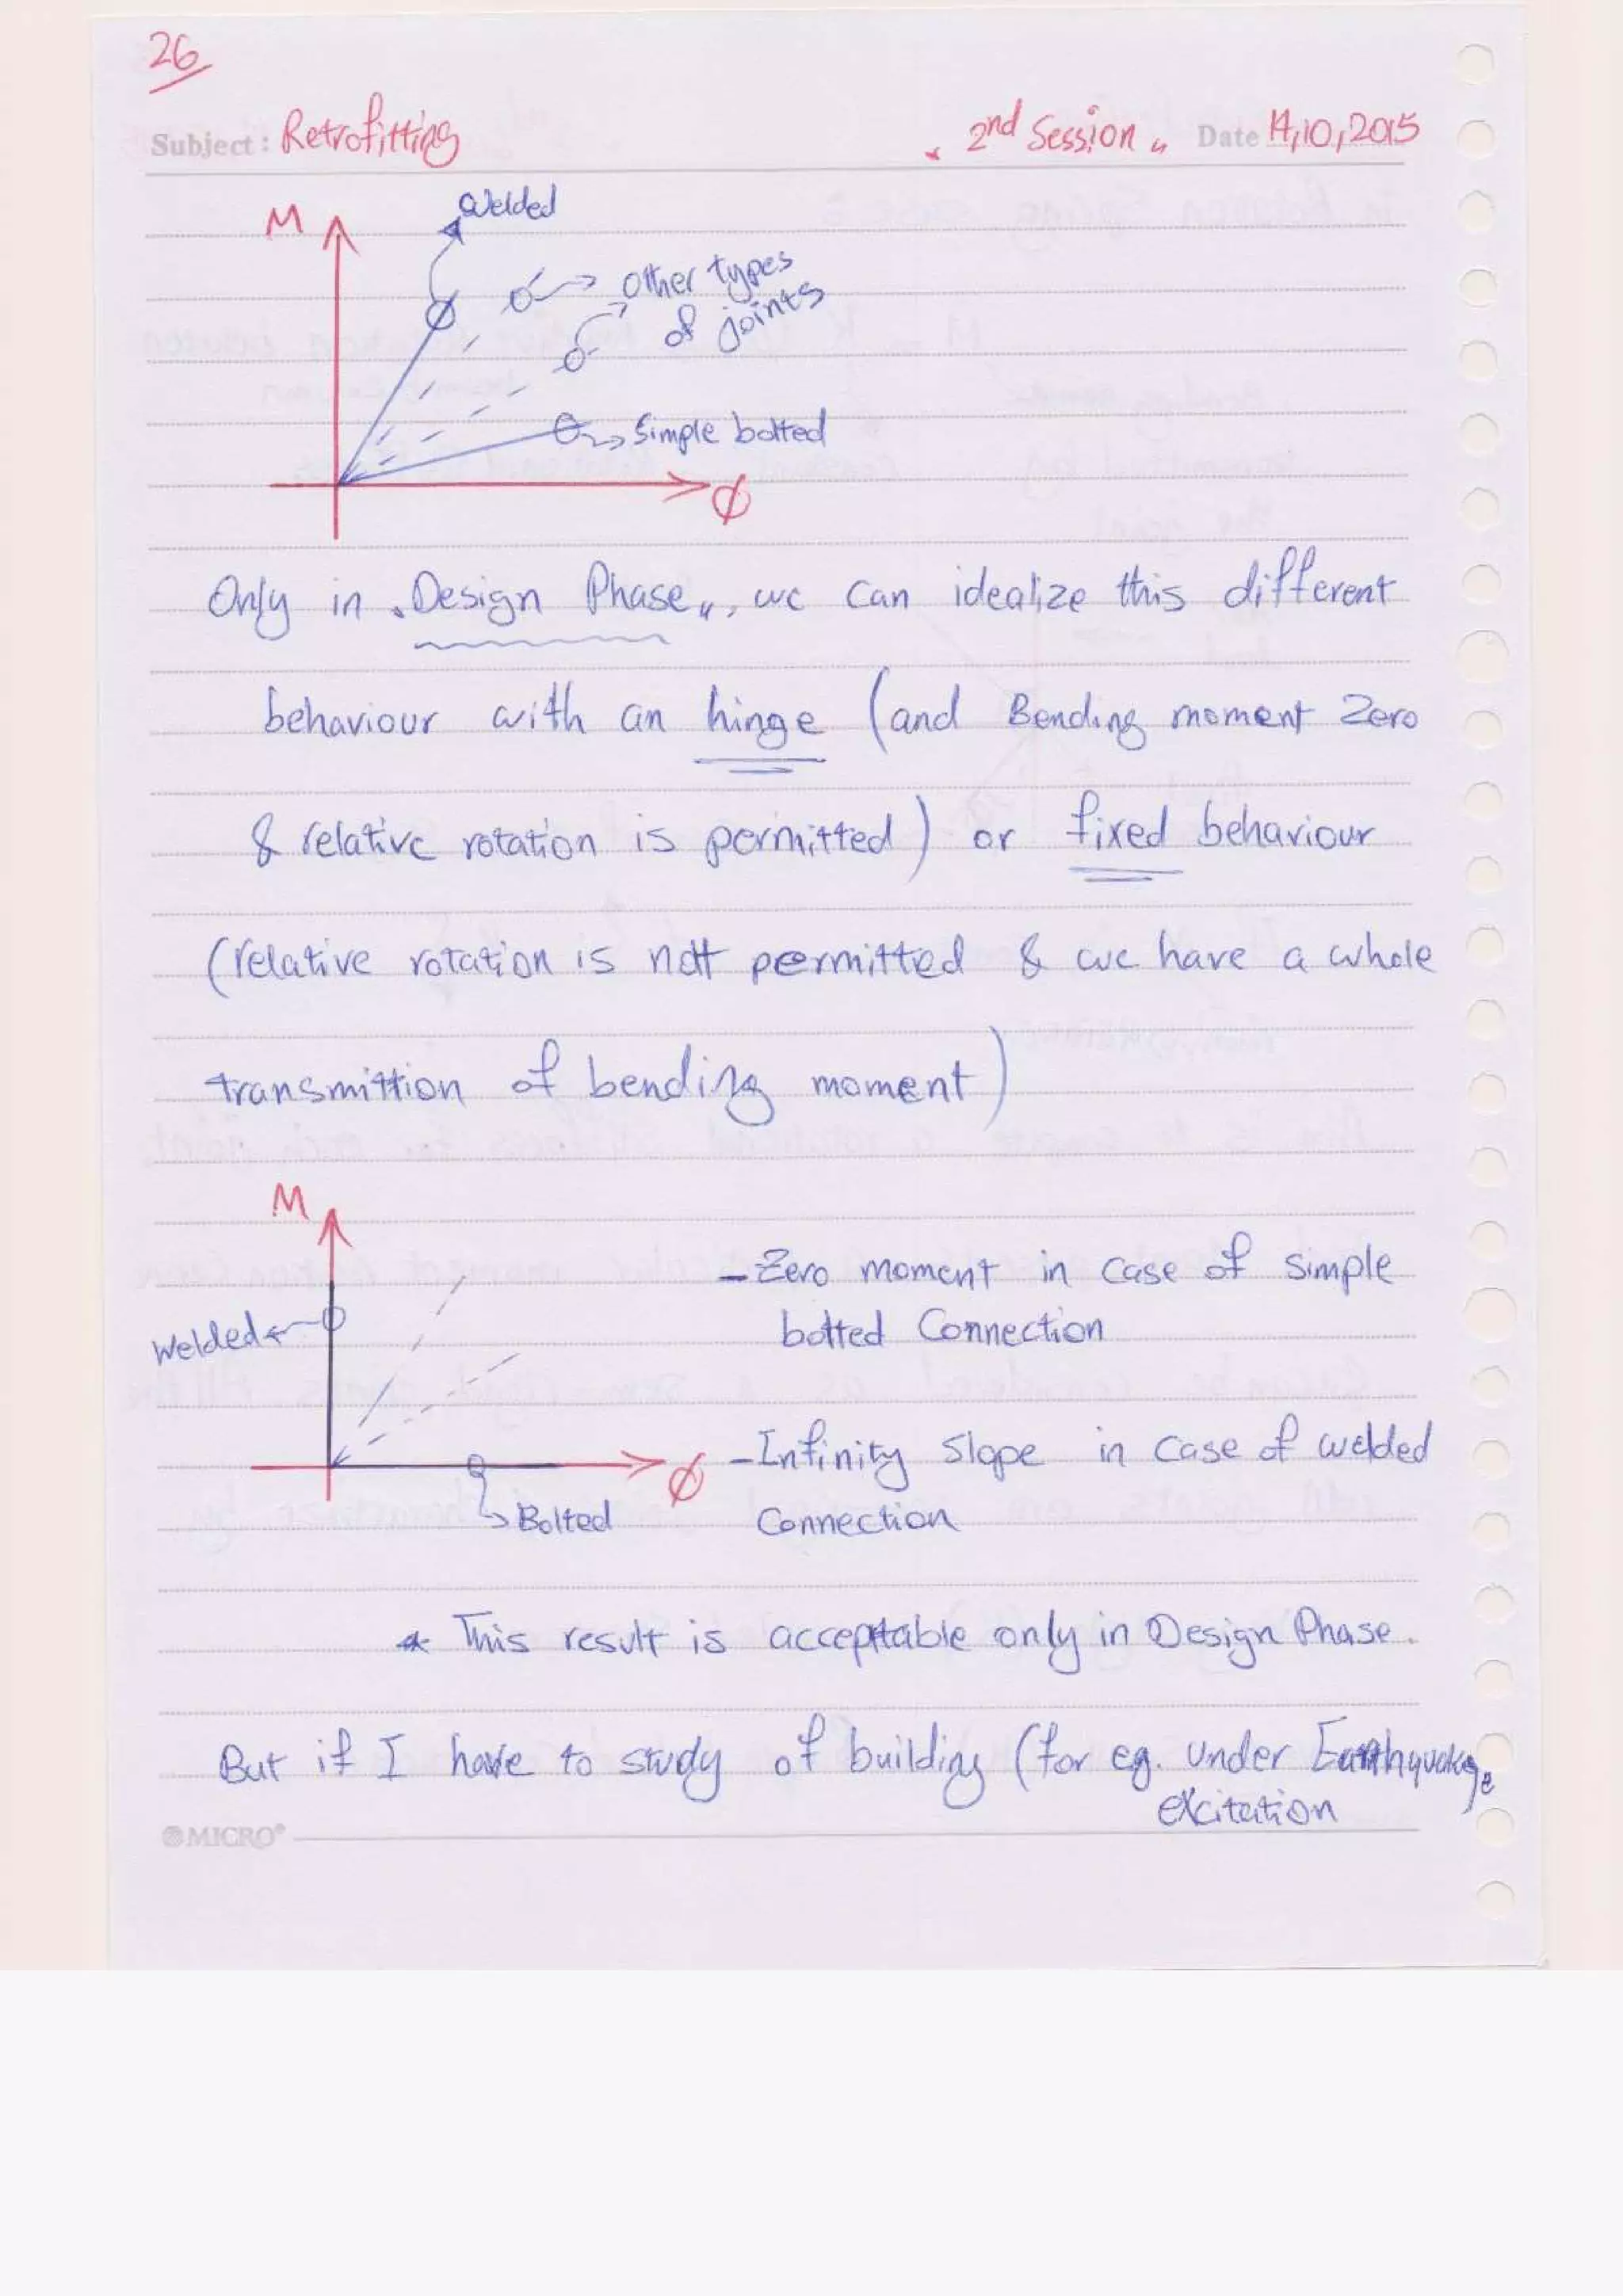 26
Subject : Retrofitting „ 2nd Session „ Date 14,10,2015
M
Welded
other types
of joints
Simple bolted
ϕ
Only in „Design Phase„, we can idealize this different
behaviour with an hinge (and Bending moment Zero
& relative rotation is permitted) or fixed behaviour
(relative rotation is not permitted & we have a whole
transmittion of bending moment)
M
Welded
ϕ
Bolted
- Zero moment in case of simple
bolted Connection
- Infinity slope in case of welded
Connection
* This result is acceptable only in Design Phase.
But if I have to study of building (for eg. under Earthquake
excitation
MICRO®